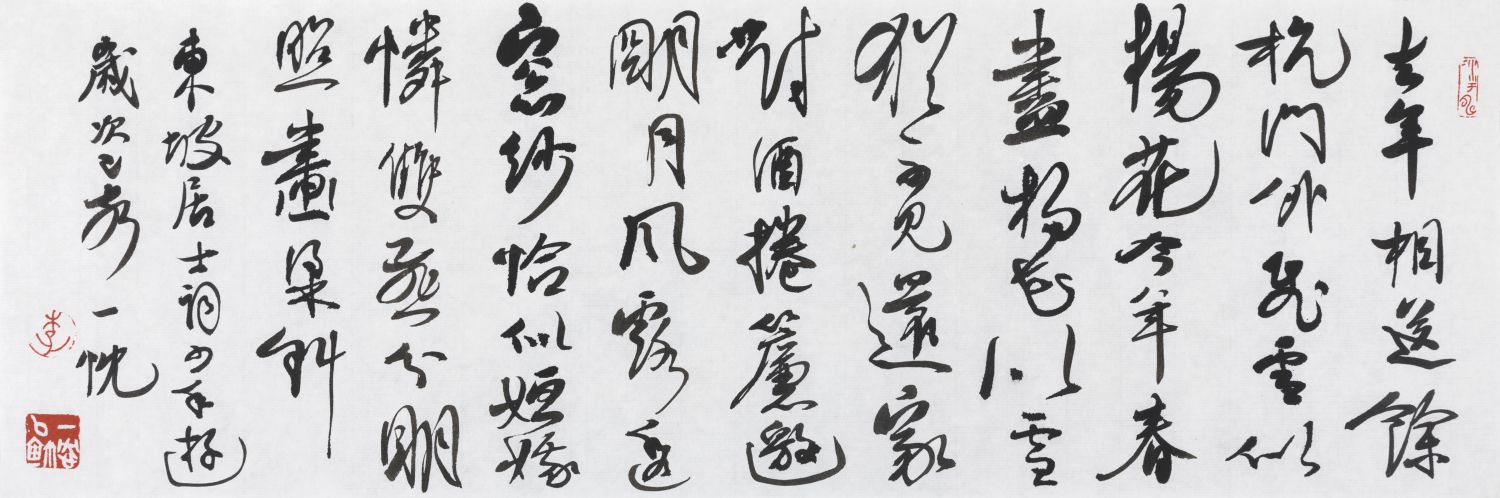 去年相送餘
杭門外飛雪似
揚花今年春
盡楊花似雪
猶不見還家
對酒捲簾邀
明月風露透
窓紗恰似姮娥
憐雙燕分明
照畫梁斜
東坡居士詞少年遊
歲次乙未一忱
李